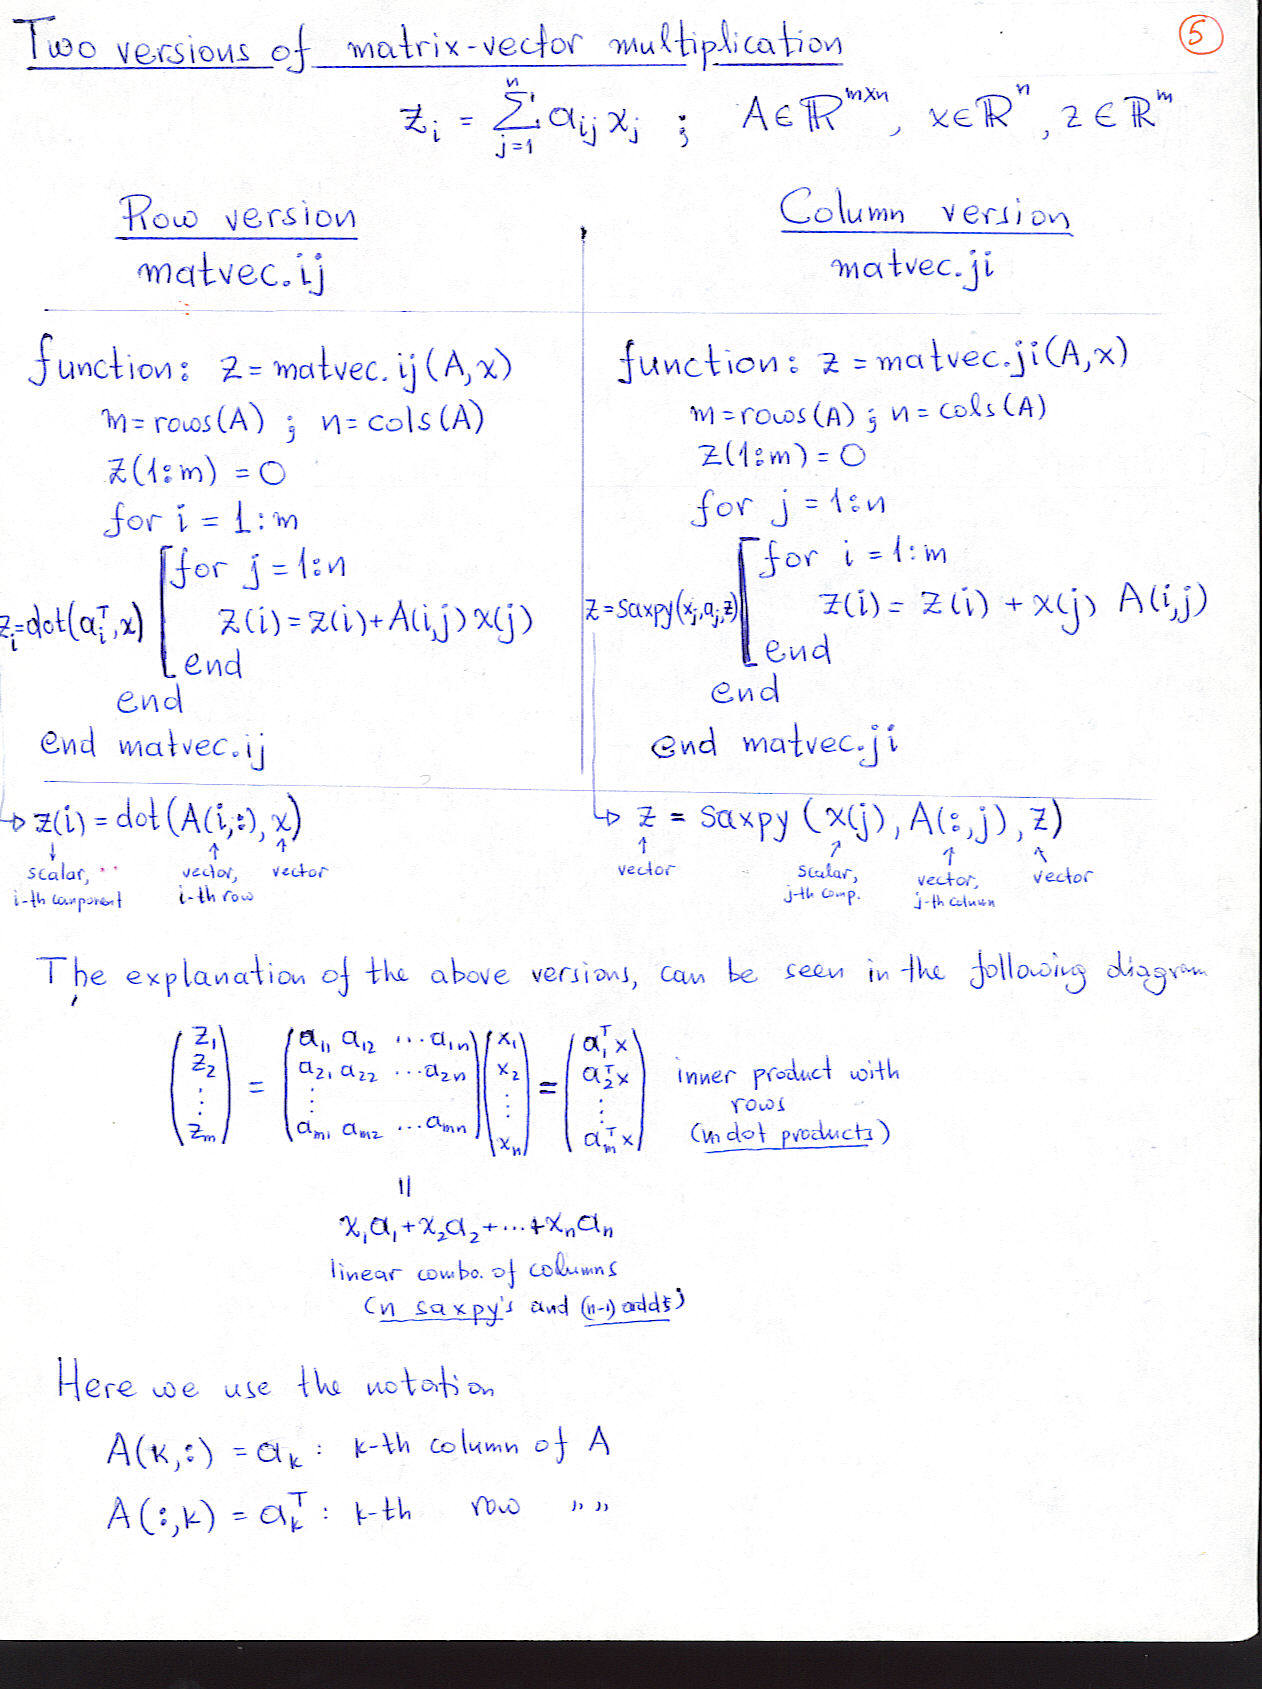 Two versions of matrix-vector multiplication
5
z_i = Σ_{j=1}^{n} a_{ij} x_j ; A ∈ ℝ^{m×n}, x ∈ ℝ^n, z ∈ ℝ^m
Row version
matvec.ij
function: z = matvec.ij(A,x)
m = rows(A) ; n = cols(A)
z(1:m) = 0
for i = 1:m
for j = 1:n
z_i = dot(a_i^T, x)
z(i) = z(i) + A(i,j) x(j)
end
end
end matvec.ij
z(i) = dot(A(i,:), x)
scalar, vector, vector
i-th component i-th row
Column version
matvec.ji
function: z = matvec.ji(A,x)
m = rows(A) ; n = cols(A)
z(1:m) = 0
for j = 1:n
for i = 1:m
z = saxpy(x_j, a_j, z)
z(i) = z(i) + x(j) A(i,j)
end
end
end matvec.ji
z = saxpy (x(j), A(:,j), z)
vector scalar, vector, vector
j-th comp. j-th column
The explanation of the above versions, can be seen in the following diagram
z_1 a_{11} a_{12} ... a_{1n} x_1 a_1^T x
z_2 = a_{21} a_{22} ... a_{2n} x_2 = a_2^T x inner product with
⋮ ⋮ ⋮ ⋮ rows
z_m a_{m1} a_{m2} ... a_{mn} x_n a_m^T x (m dot products)
=
x_1 a_1 + x_2 a_2 + ... + x_n a_n
linear combo. of columns
(n saxpy's and (n-1) adds)
Here we use the notation
A(k,:) = a_k : k-th column of A
A(:,k) = a_k^T : k-th row " "